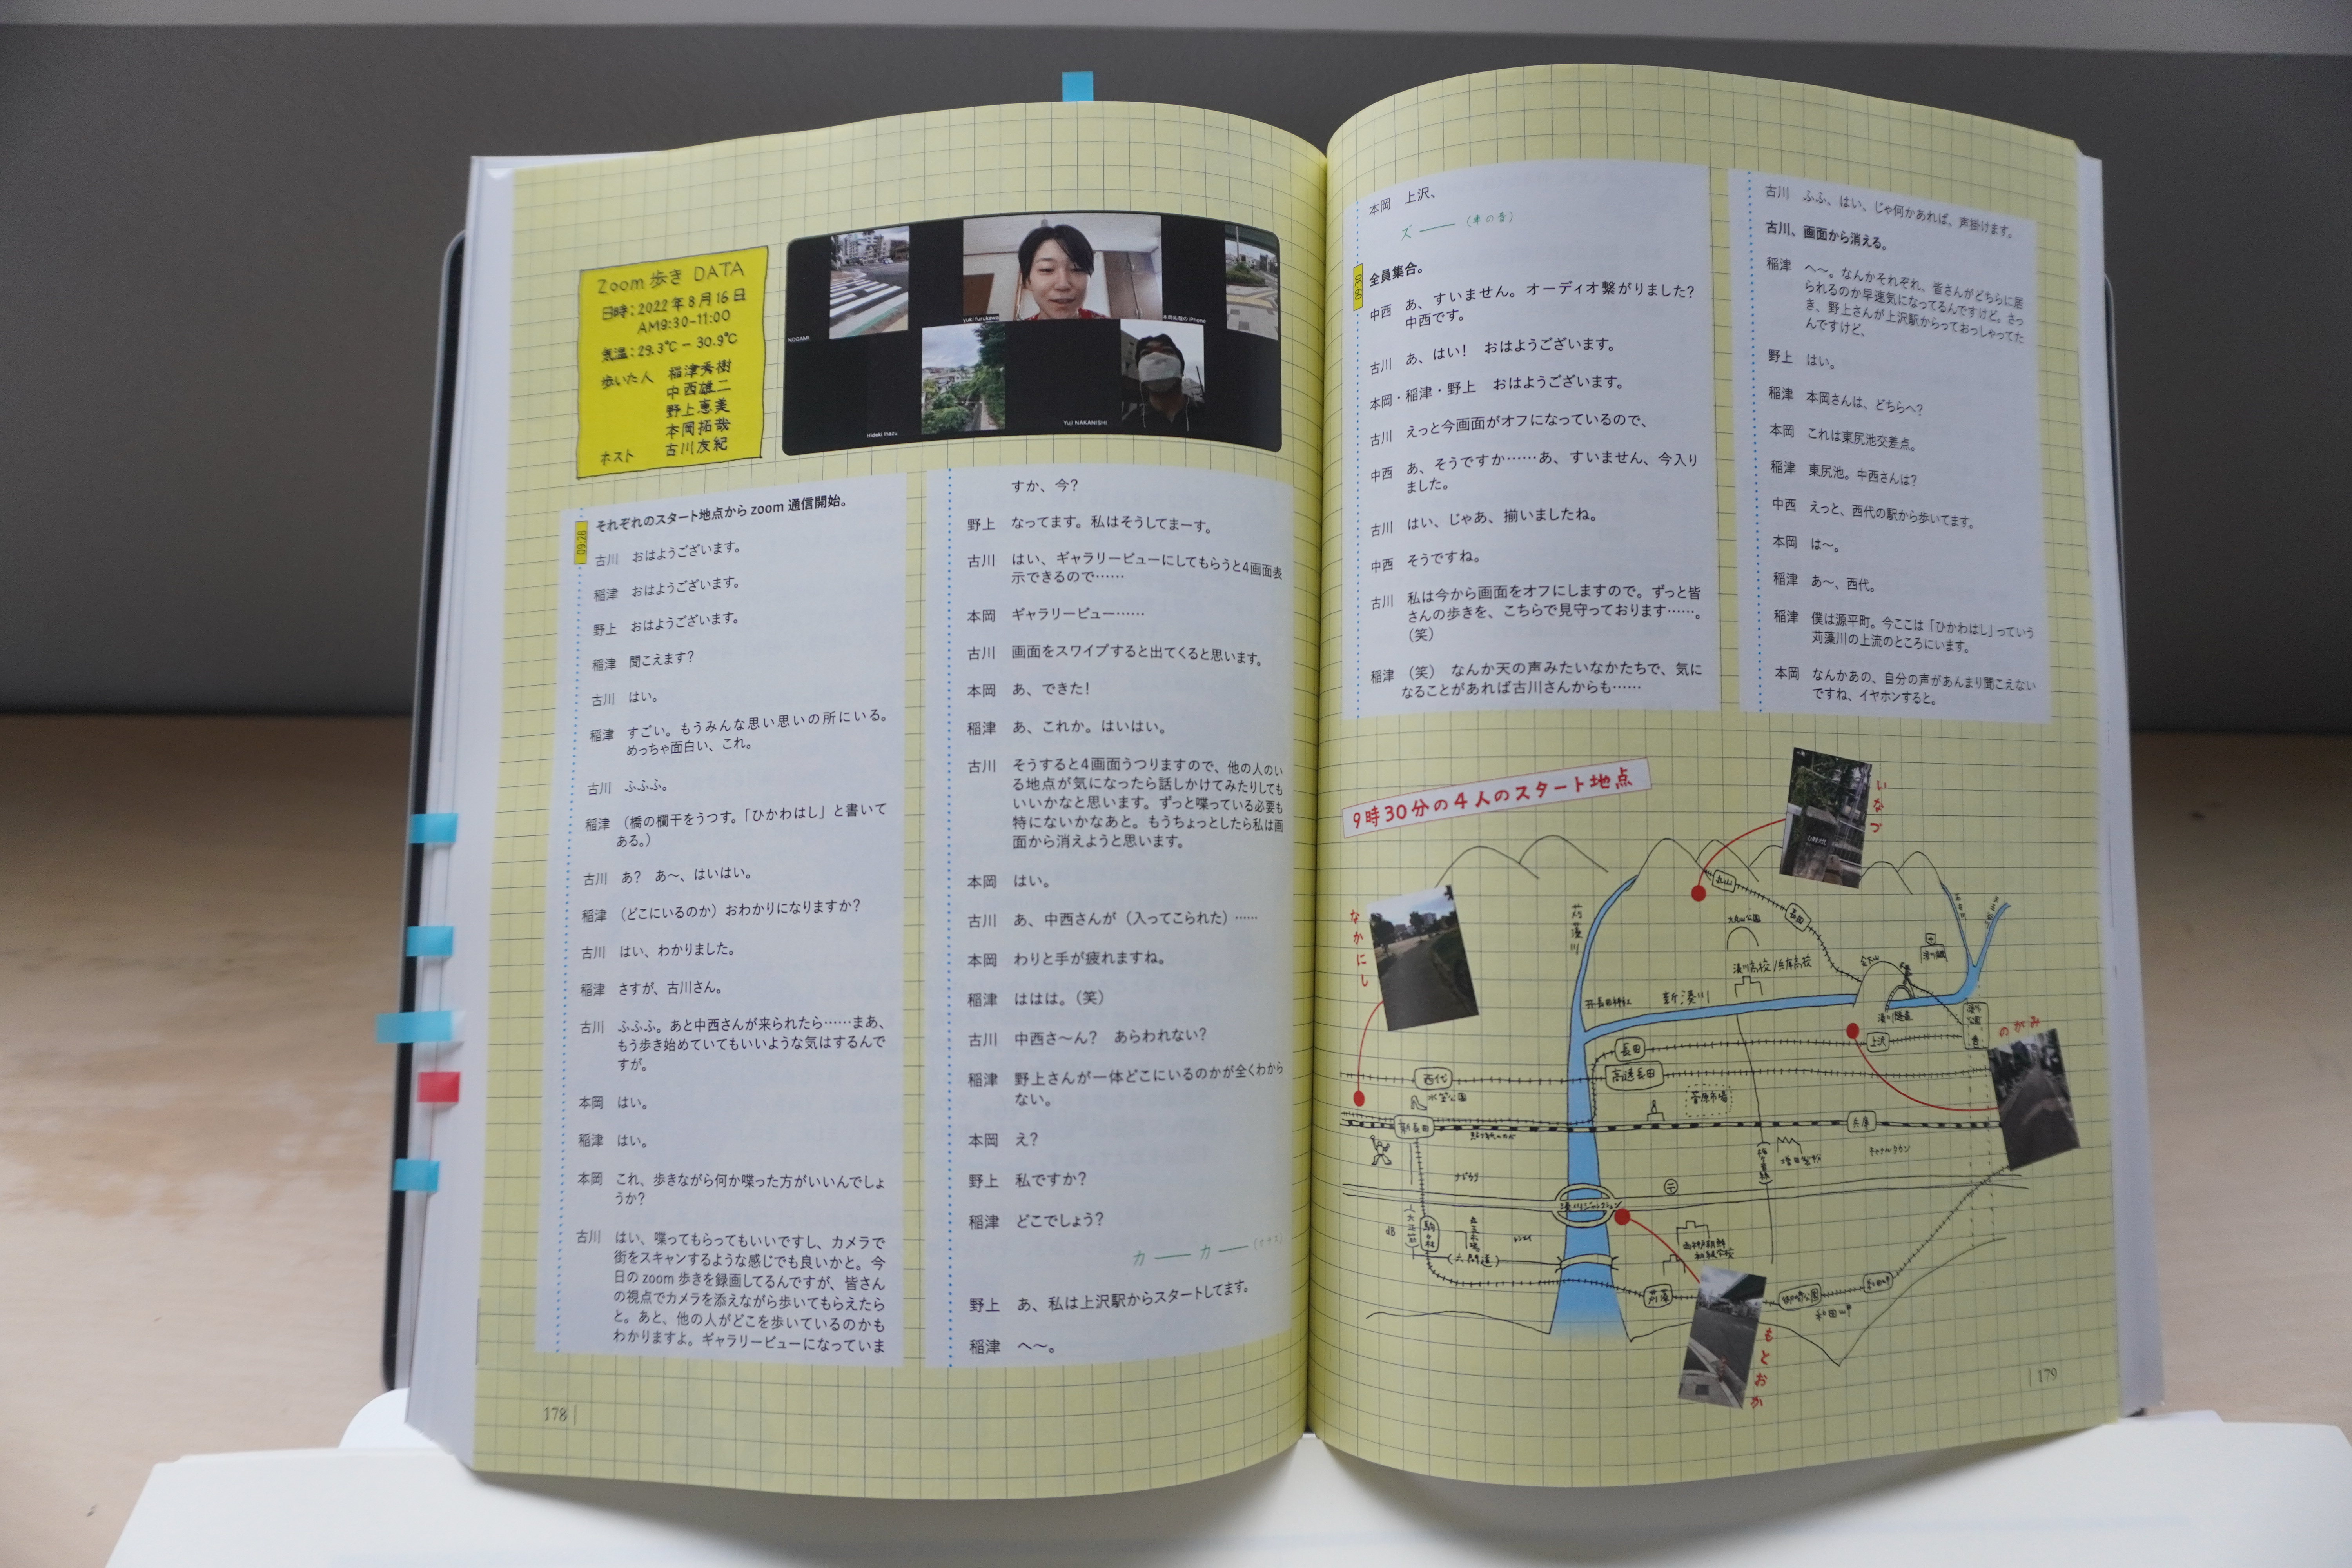 Zoom歩き DATA
日時：2022年8月16日
AM9:30-11:00
気温：29.3℃－30.9℃
歩いた人 稲津秀樹
中西雄二
野上恵美
本岡拓哉
ホスト 古川友紀
NOGAMI
Yuki Furukawa
本岡拓哉のiPhone
Hideki Inazu
Yuji NAKANISHI
09:28
それぞれのスタート地点からzoom通信開始。
古川 おはようございます。
稲津 おはようございます。
野上 おはようございます。
稲津 聞こえます？
古川 はい。
稲津 すごい。もうみんな思い思いの所にいる。
めっちゃ面白い、これ。
古川 ふふふ。
稲津 （橋の欄干をうつす。「ひかわはし」と書いて
ある。）
古川 あ？ あ～、はいはい。
稲津 （どこにいるのか）おわかりになりますか？
古川 はい、わかりました。
稲津 さすが、古川さん。
古川 ふふふ。あと中西さんが来られたら……まあ、
もう歩き始めていてもいいような気はするんで
すが。
本岡 はい。
稲津 はい。
本岡 これ、歩きながら何か喋った方がいいんでしょ
うか？
古川 はい、喋ってもらってもいいですし、カメラで
街をスキャンするような感じでも良いかと。今
日のzoom歩きを録画してるんですが、皆さん
の視点でカメラを添えながら歩いてもらえたら
と。あと、他の人がどこを歩いているのかも
わかりますよ。ギャラリービューになっていま
すか、今？
野上 なってます。私はそうしてまーす。
古川 はい、ギャラリービューにしてもらうと4画面表
示できるので……
本岡 ギャラリービュー……
古川 画面をスワイプすると出てくると思います。
本岡 あ、できた！
稲津 あ、これか。はいはい。
古川 そうすると4画面うつりますので、他の人のい
る地点が気になったら話しかけてみたりしても
いいかなと思います。ずっと喋っている必要も
特にないかなあと。もうちょっとしたら私は画
面から消えようと思います。
本岡 はい。
古川 あ、中西さんが（入ってこられた）……
本岡 わりと手が疲れますね。
稲津 ははは。（笑）
古川 中西さ～ん？ あらわれない？
稲津 野上さんが一体どこにいるのかが全くわから
ない。
本岡 え？
野上 私ですか？
稲津 どこでしょう？
カ── カ──
野上 あ、私は上沢駅からスタートしてます。
稲津 へ～。
178
本岡 上沢、
ズ──（車の音）
09:30
全員集合。
中西 あ、すいません。オーディオ繋がりました？
中西です。
古川 あ、はい！ おはようございます。
本岡・稲津・野上 おはようございます。
古川 えっと今画面がオフになっているので、
中西 あ、そうですか……あ、すいません、今入り
ました。
古川 はい、じゃあ、揃いましたね。
中西 そうですね。
古川 私は今から画面をオフにしますので。ずっと皆
さんの歩きを、こちらで見守っております……。
（笑）
稲津 （笑） なんか天の声みたいなかたちで、気に
なることがあれば古川さんからも……
古川 ふふ、はい、じゃ何かあれば、声掛けます。
古川、画面から消える。
稲津 へ～。なんかそれぞれ、皆さんがどちらに居
られるのか早速気になってるんですけど。さっ
き、野上さんが上沢駅からっておっしゃってた
んですけど、
野上 はい。
稲津 本岡さんは、どちらへ？
本岡 これは東尻池交差点。
稲津 東尻池。中西さんは？
中西 えっと、西代の駅から歩いてます。
本岡 は～。
稲津 あ～、西代。
稲津 僕は源平町。今ここは「ひかわはし」っていう
苅藻川の上流のところにいます。
本岡 なんかあの、自分の声があんまり聞こえない
ですね、イヤホンすると。
9時30分の4人のスタート地点
いなづ
なかにし
のがみ
もとおか
苅藻川
丸山
長田
丸山公園
湊川高校/兵庫高校
会下山
新湊川
湊川隧道
長田
上沢
西代
高速長田
水笠公園
菅原市場
新長田
兵庫
キャナルタウン
湊川ジャンクション
駒ヶ林
（六間道）
苅藻
御崎公園
和田岬
和田岬
179